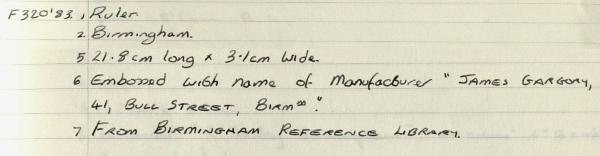 F320'83. 1 Ruler
2 Birmingham.
5 21.8cm long x 3.1cm wide.
6 Embossed with name of Manufacturer "JAMES GARGORY,
41, BULL STREET, BIRMm."
7 FROM BIRMINGHAM REFERENCE LIBRARY.